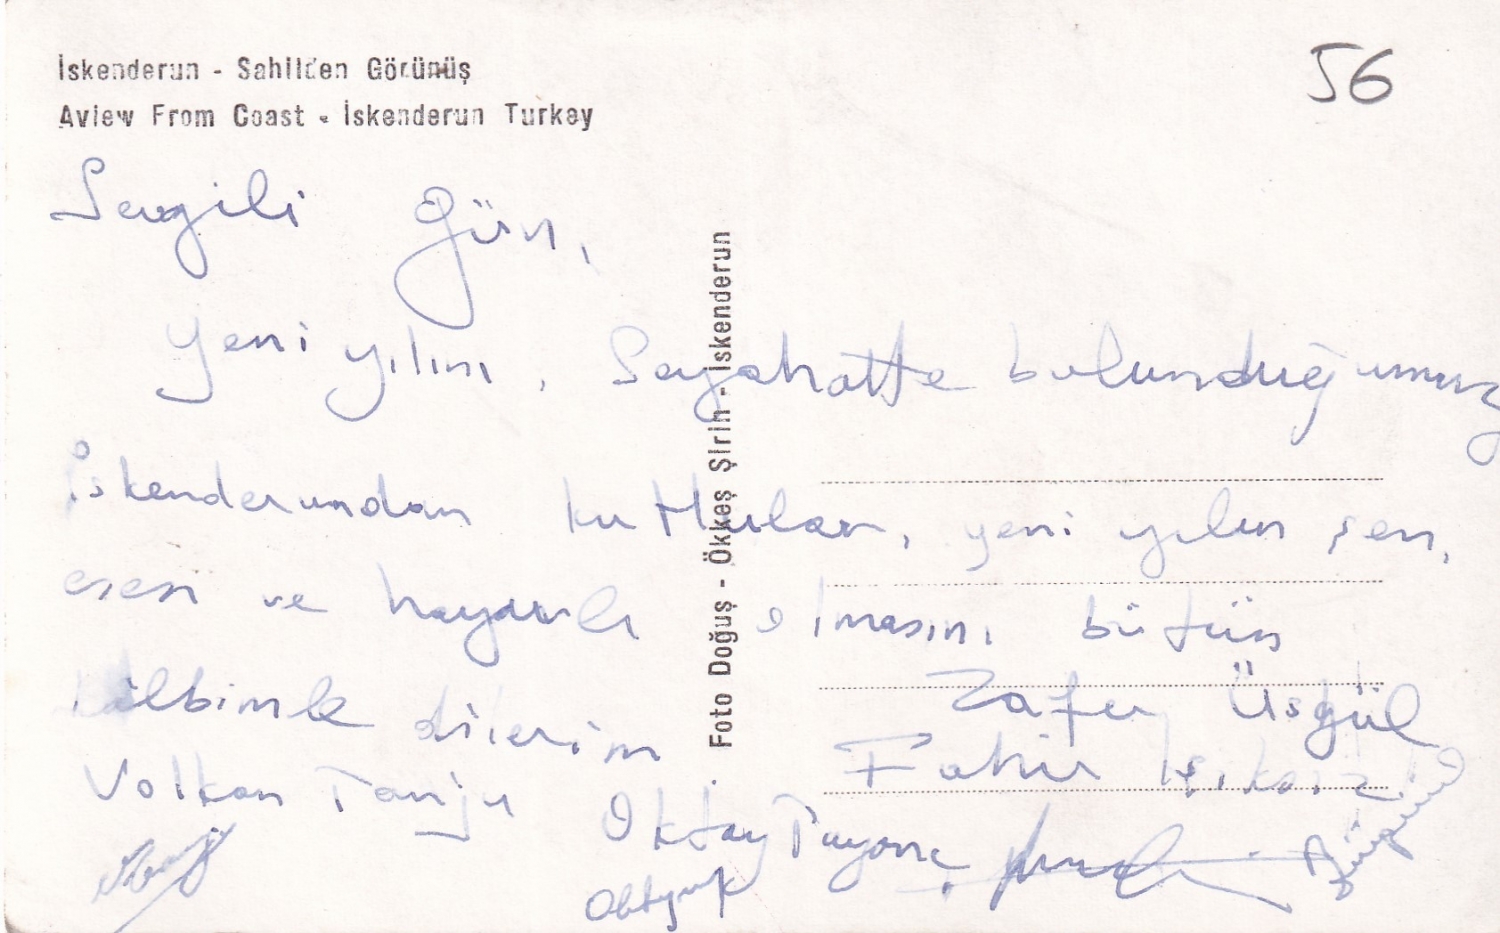 İskenderun - Sahilden Görünüş
Aview From Coast - İskenderun Turkey
56
Sevgili Gün,
Yeni yılını, Seyahatte bulunduğumuz
İskenderundan kutlular, yeni yılın şen,
esen ve hayırlı olmasını bütün
kalbimle dilerim
Zafer Üsgül
Fahir Işıksız
Volkan Tanju
Oktay
Foto Doğuş - Ökkeş Şirin - İskenderun